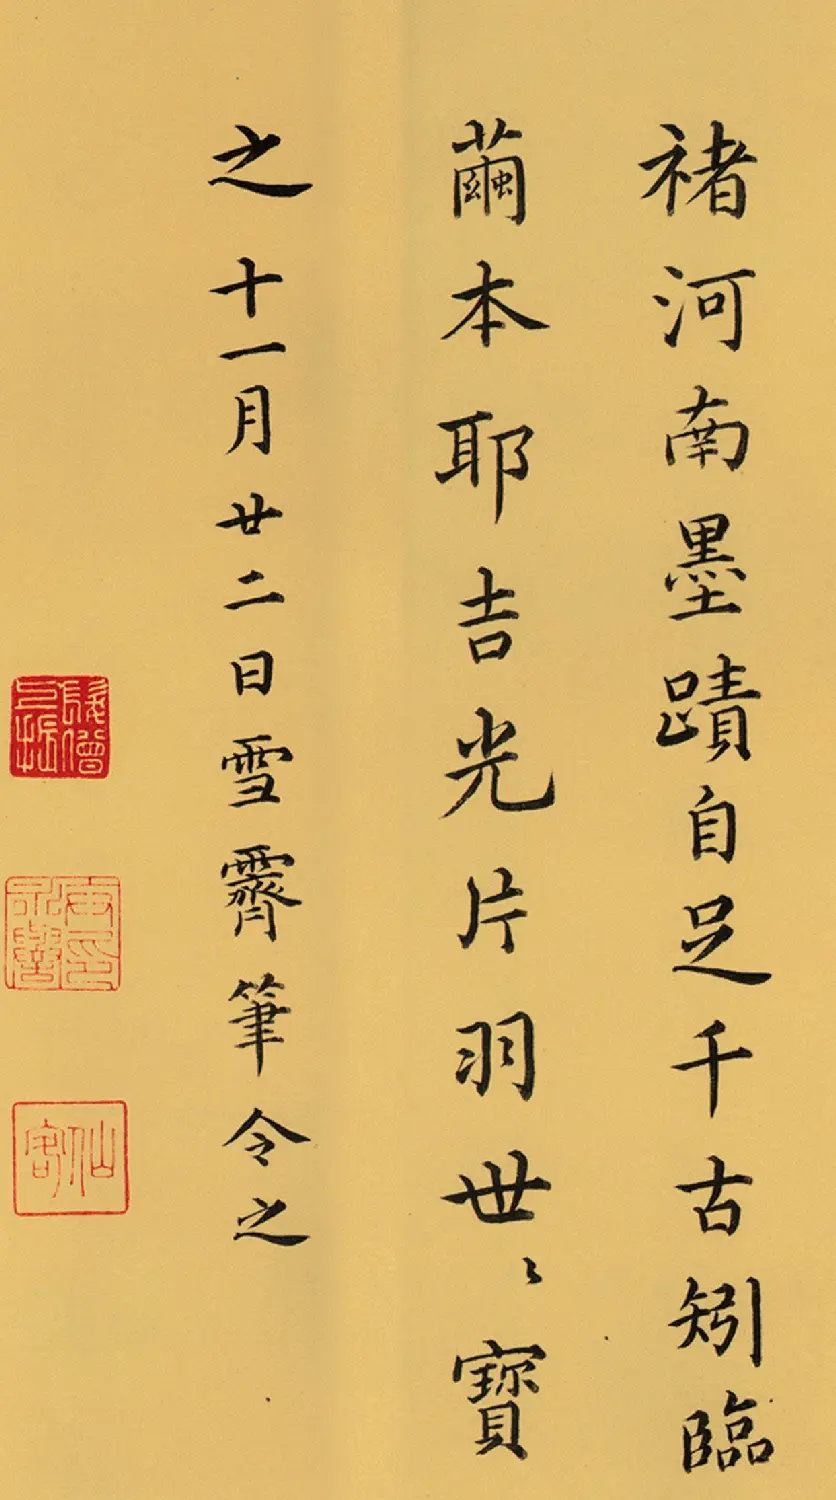 褚河南墨蹟自足千古矧臨
繭本耶吉光片羽世〻寶
之十一月廿二日雪霽筆令之
仙客